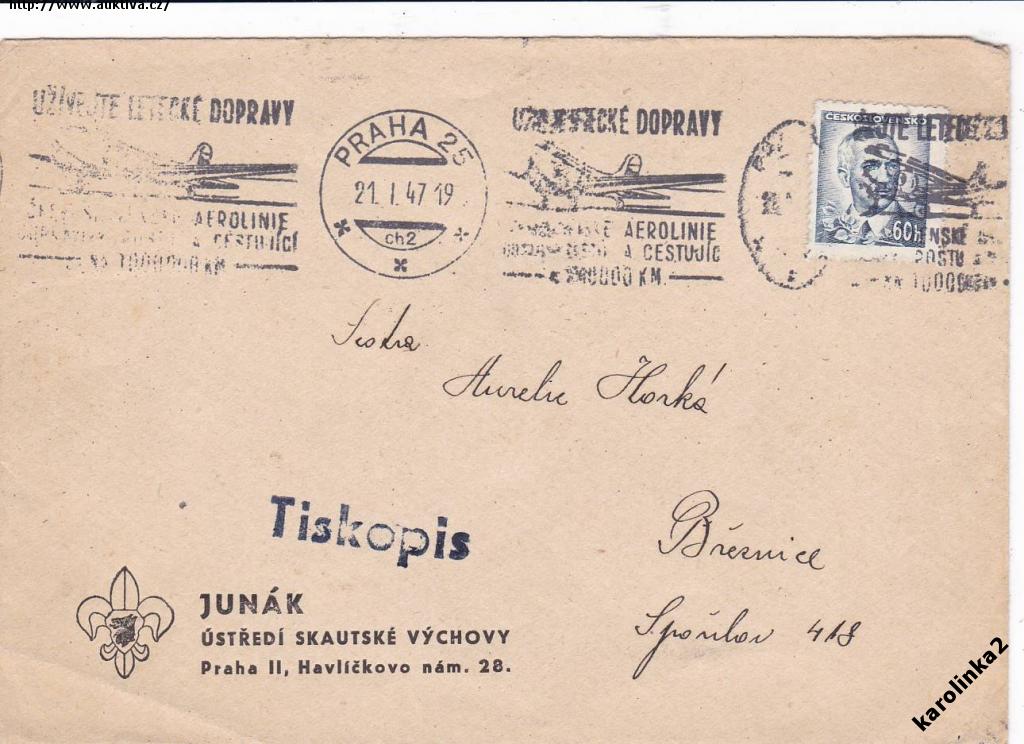 http://www.auktiva.cz/
UŽÍVEJTE LETECKÉ DOPRAVY
AEROLINIE
A CESTUJÍCÍ
1000000 KM.
PRAHA 25
21. I. 47 19
ch2
DOPRAVY
AEROLINIE
A CESTUJÍC
KM.
ČESKOSLOVENSKO
60h
LETECK
POSTU
Sestra
Aurelie Horká
Březnice
Spořilov 418
Tiskopis
JUNÁK
ÚSTŘEDÍ SKAUTSKÉ VÝCHOVY
Praha II, Havlíčkovo nám. 28.
karolinka2